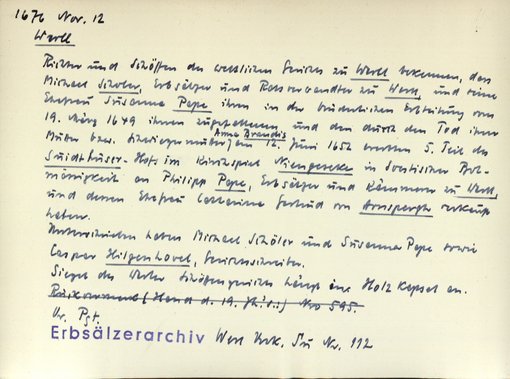 1676 Nov. 12
Werl
Richter und Schöffen des weltlichen Gerichts zu Werl bekennen, dass
Michael Schöler, Erbsälzer und Ratsverwandter zu Werl, und seine
Ehefrau Susanna Pape ihren in der brüderlichen Erbteilung vom
19. März 1649 ihnen zugefallenen, und den durch den Tod ihrer
Mutter bzw. Schwiegermutter Anna Brandis am 12. Juni 1652 ererbten 5. Teil des
Schmidthüser-Hofs im Kirchspiel Niengeseke in Soestischer Bot-
mässigkeit an Philipp Pape, Erbsälzer und Kämmerer zu Werl,
und dessen Ehefrau Catharina Gertrud von Arnsbergh verkauft
haben.
Unterschrieben haben Michael Schöler und Susanna Pape sowie
Caspar Hilgenhövel, Gerichtsschreiber.
Siegel des Werler Schöffengerichts hängt in Holzkapsel an.
Rückvermerk (Hand d. 19. Jh's.:) Nro 595.
Or. Pgt.
Erbsälzerarchiv Werl Urk. Nr. 112